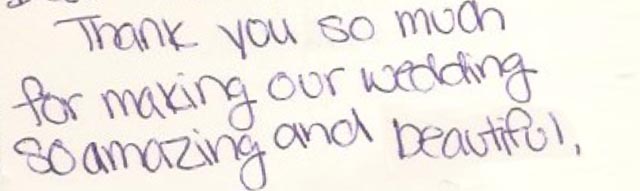 Thank you so much
for making our wedding
so amazing and beautiful,